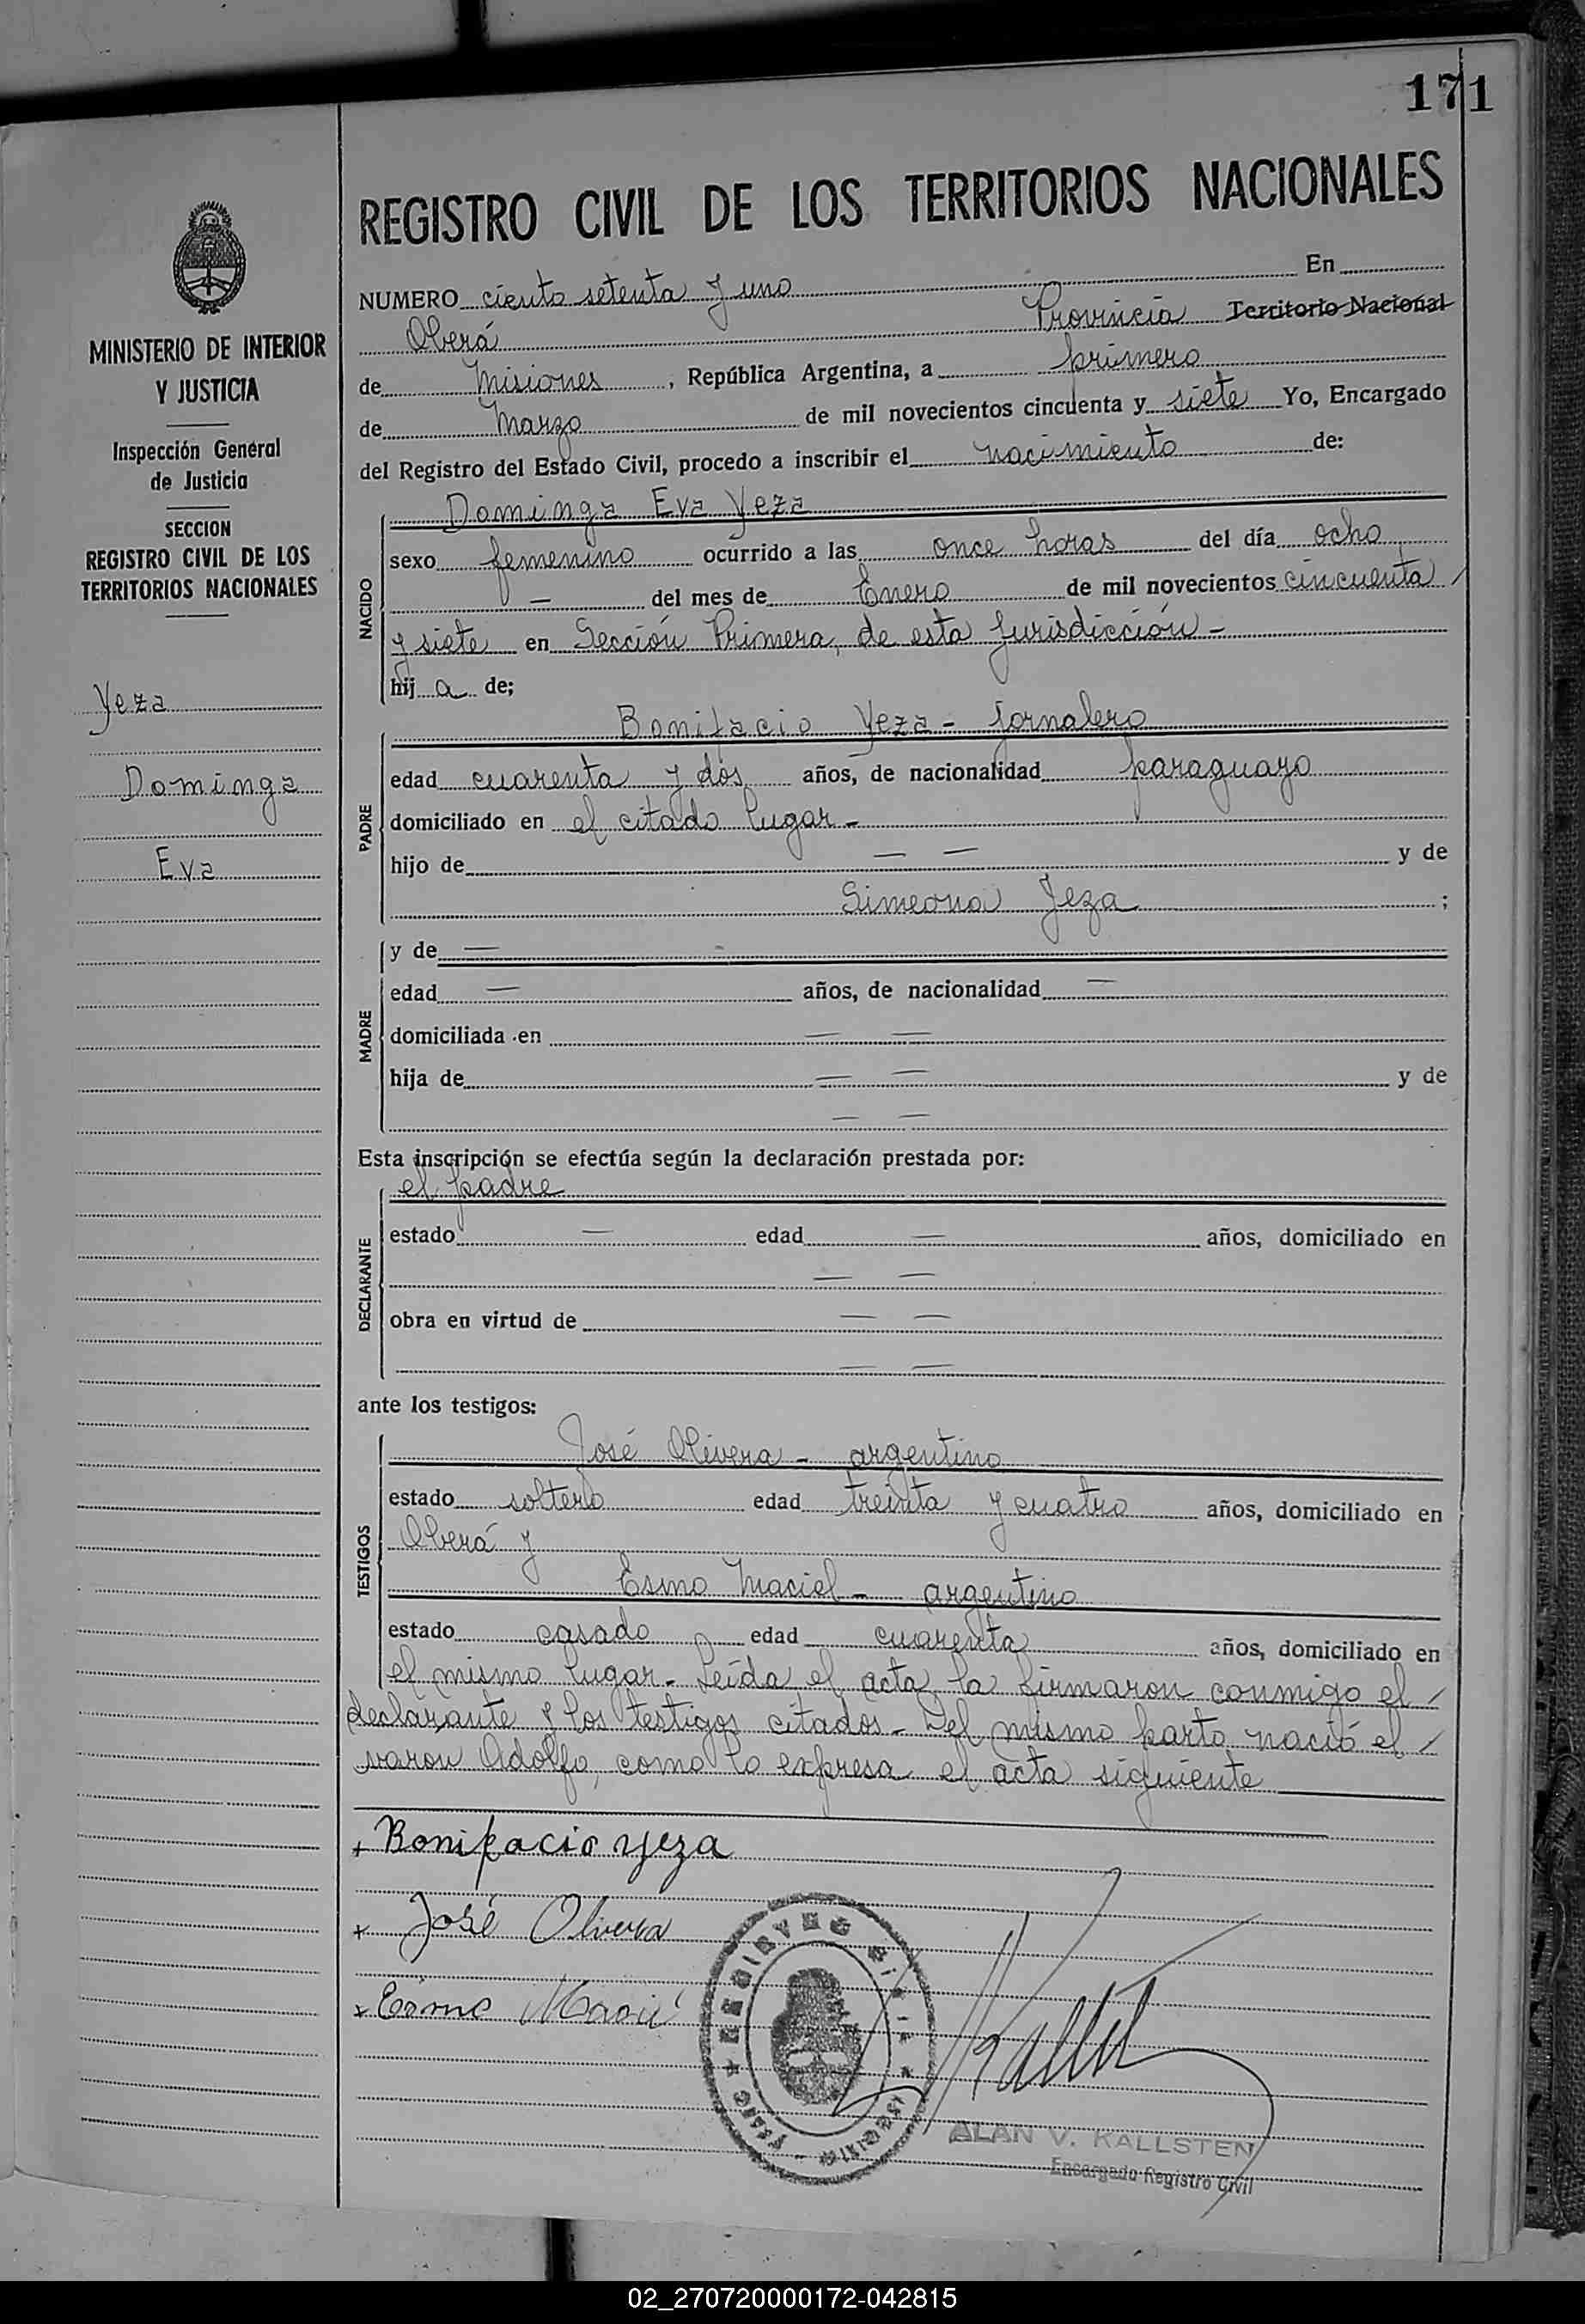 171
REGISTRO CIVIL DE LOS TERRITORIOS NACIONALES
MINISTERIO DE INTERIOR
Y JUSTICIA
Inspección General
de Justicia
SECCION
REGISTRO CIVIL DE LOS
TERRITORIOS NACIONALES
Yeza
Dominga
Eva
NUMERO ciento setenta y uno En
Oberá Provincia Territorio Nacional
de Misiones, República Argentina, a primero
de Marzo de mil novecientos cincuenta y siete Yo, Encargado
del Registro del Estado Civil, procedo a inscribir el nacimiento de:
NACIDO
Dominga Eva Yeza
sexo femenino ocurrido a las once horas del día ocho
— del mes de Enero de mil novecientos cincuenta /
y siete en Sección Primera, de esta Jurisdicción -
hij a de;
PADRE
Bonifacio Yeza - Jornalero
edad cuarenta y dos años, de nacionalidad paraguayo
domiciliado en el citado lugar -
hijo de — — y de
Simeona Yeza ;
MADRE
y de —
edad — años, de nacionalidad —
domiciliada en — —
hija de — — y de
— —
Esta inscripción se efectúa según la declaración prestada por:
DECLARANTE
el padre
estado — edad — años, domiciliado en
— —
obra en virtud de — —
— —
ante los testigos:
TESTIGOS
José Olivera - argentino
estado soltero edad treinta y cuatro años, domiciliado en
Oberá y
Esmo Maciel - argentino
estado casado edad cuarenta años, domiciliado en
el mismo lugar - Leída el acta la firmaron conmigo el /
declarante y los testigos citados - Del mismo parto nació el /
varon Adolfo, como lo expresa el acta siguiente
+ Bonifacio Yeza
+ José Olivera
x Esmo
ALAN V. KALLSTEN
Encargado Registro Civil
02_270720000172-042815